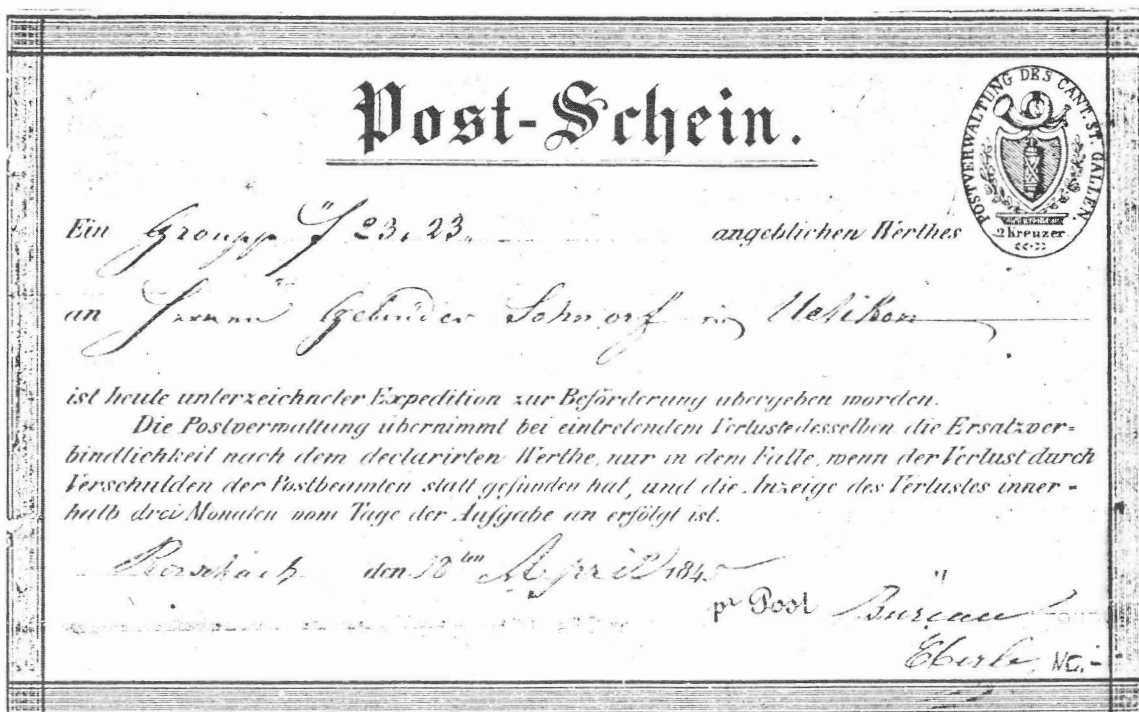 Post-Schein.
POSTVERWALTUNG DES CANT. ST. GALLEN.
2 Kreuzer
Ein Groupp f 23.23. angeblichen Werthes
an Herren Gebrüder Schnorf in Uetikon
ist heute unterzeichneter Expedition zur Beförderung übergeben worden.
Die Postverwaltung übernimmt bei eintretendem Verluste desselben die Ersatzver=
bindlichkeit nach dem declarirten Werthe, nur in dem Falle, wenn der Verlust durch
Verschulden der Postbeamten statt gefunden hat, und die Anzeige des Verlustes inner=
halb drei Monaten vom Tage der Aufgabe an erfolgt ist.
Rorschach den 18ten April 1845
pr Post Büreau
Eberle